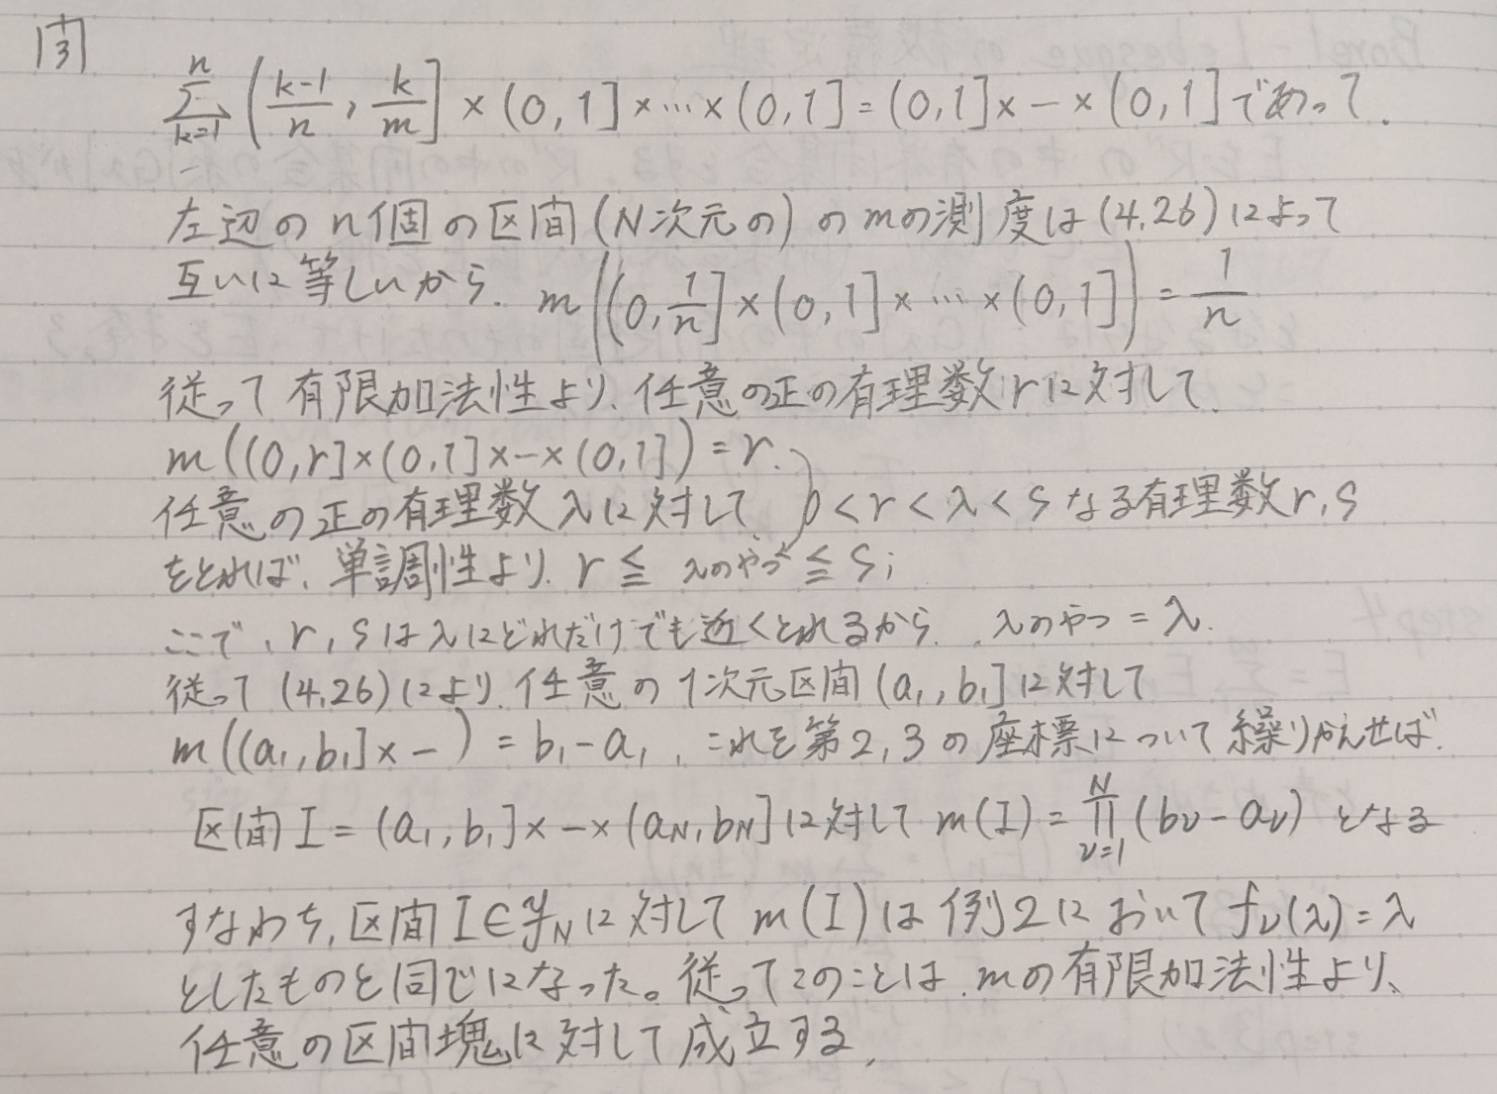 問3
\sum_{k=1}^{n} ( \frac{k-1}{n}, \frac{k}{m} ] × (0, 1] × … × (0, 1] = (0, 1] × — × (0, 1] であって、
左辺の n個の区間 (N次元の) の mの測度は (4.26) によって
互いに等しいから、 m((0, \frac{1}{n}] × (0, 1] × … × (0, 1]) = \frac{1}{n}
従って 有限加法性より、任意の正の有理数 r に対して、
m((0, r] × (0, 1] × — × (0, 1]) = r.
任意の正の有理数 λ に対して 0 < r < λ < s なる有理数 r, s
をとれば、単調性より、 r ≦ λのやつ ≦ s;
ここで、r, s は λ にどれだけでも近くとれるから、λのやつ = λ.
従って (4.26) により、任意の 1次元区間 (a₁, b₁] に対して
m((a₁, b₁] × — ) = b₁ - a₁, これを第2, 3 の座標について繰りかえせば、
区間 I = (a₁, b₁] × — × (a_N, b_N] に対して m(I) = \prod_{ν=1}^{N} (b_ν - a_ν) となる
すなわち、区間 I ∈ 𝒥_N に対して m(I) は 例2 において f_ν(λ) = λ
としたものと同じになった。従ってこのことは、mの有限加法性より、
任意の区間塊に対して成立する.